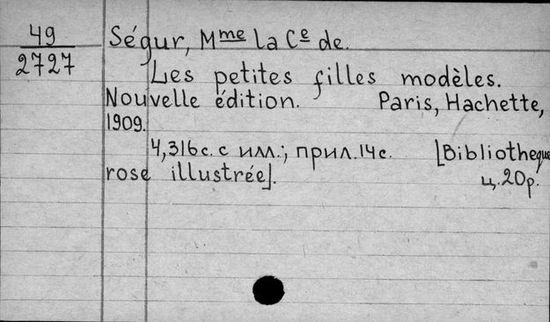 49
2727
Ségur, Mme la Ce de.
Les petites filles modèles.
Nouvelle édition. Paris, Hachette,
1909.
4,316с. с илл.; прил. 14с. [Bibliotheque
rose illustrée].
ц. 20р.